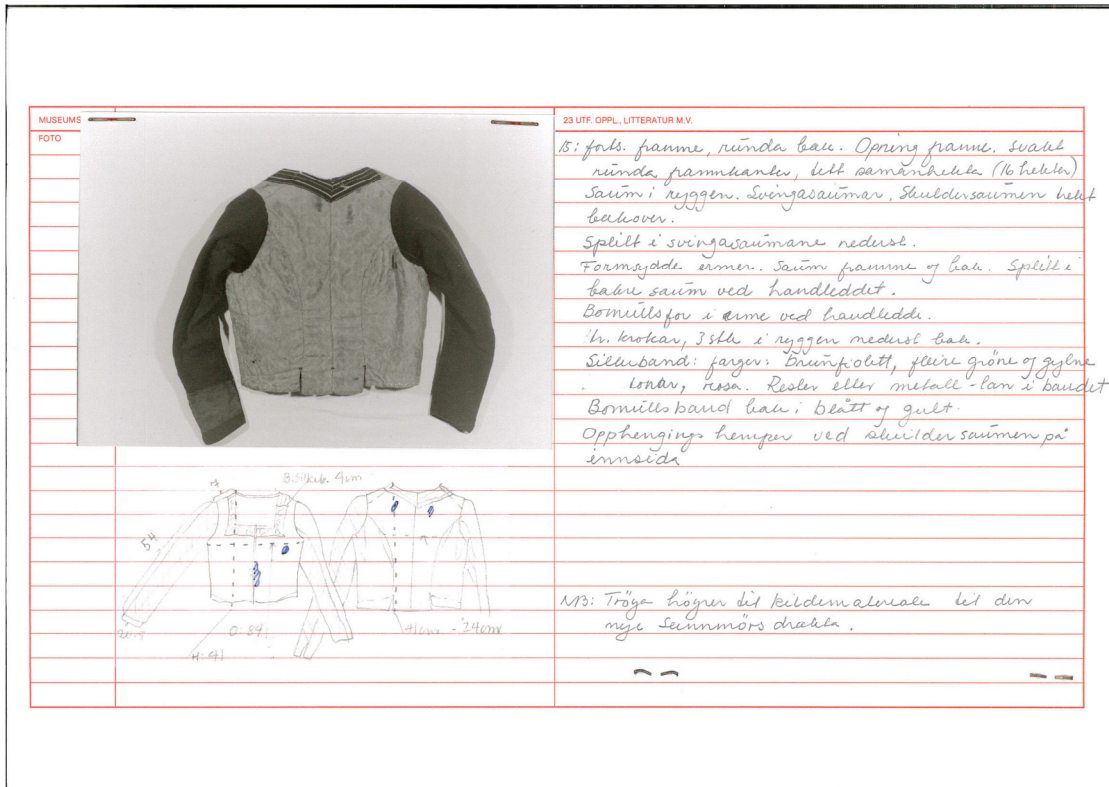 MUSEUMS
FOTO
23 UTF. OPPL., LITTERATUR M.V.
15: forts. framme, runda bak. Opning framme. Svakt
runda framkanter, tett samanhekta (16 hekter)
Saum i ryggen. Svingasaumar, Skuldersaumen
bakover.
Splitt i svingasaumane nederst.
Formsydde ermer. Saum framme og bak. Splitt i
bakre saum ved handleddet.
Bomullsfor i erme ved handledde.
krokar, 3 stk i ryggen nederst bak.
Silkeband: farger: brunfiolett, fleire gröne og gylne
tonar, rosa. Rester etter metall-lan i bandet
Bomullsband bak i blått og gult.
Opphengings hemper ved skuldersaumen på
innsida
B. Silkeb. 4cm
54
20.5
O: 84
H: 41
41cm - 24cm
NB: Tröya högrer til kildemateriale til den
nye Sunnmörs drakta.